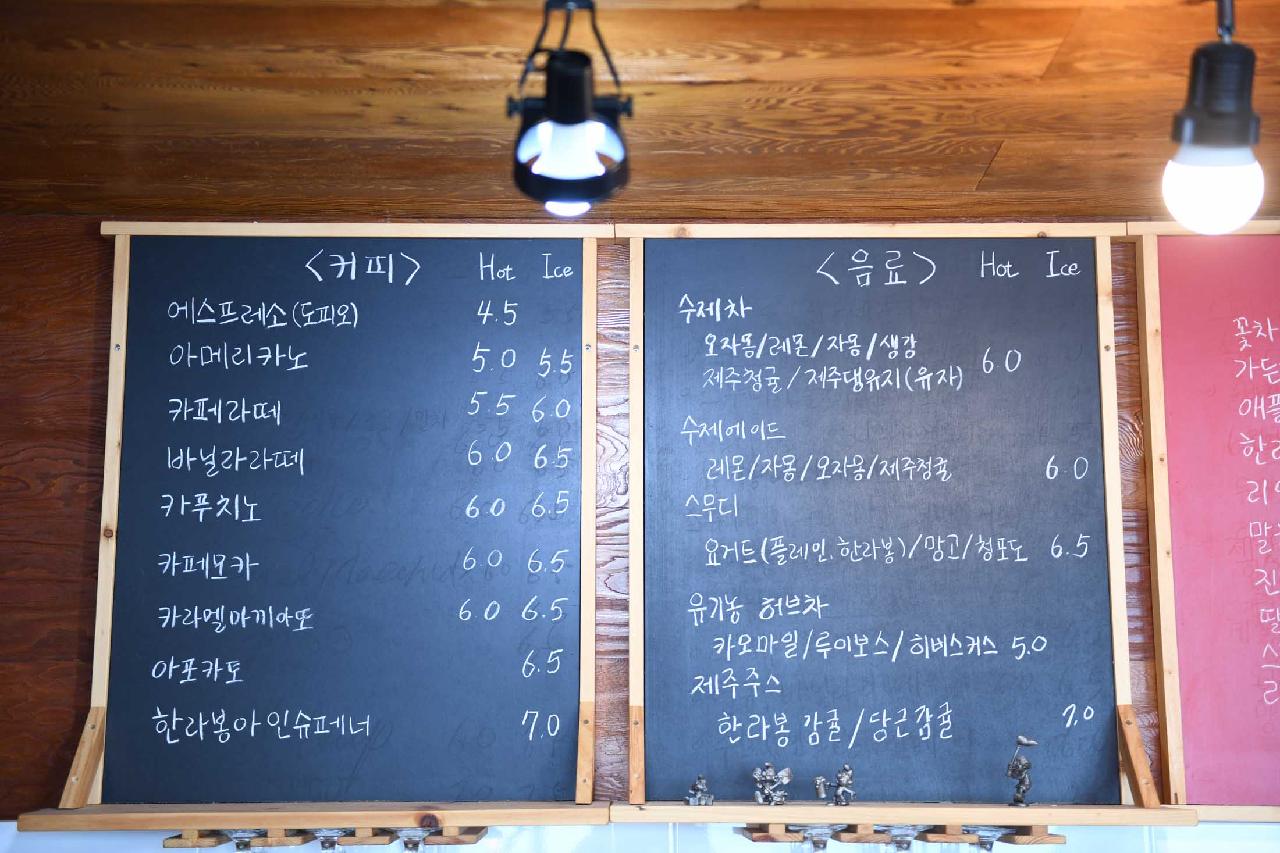 <커피> Hot Ice
에스프레소(도피오) 4.5
아메리카노 5.0 5.5
카페라떼 5.5 6.0
바닐라라떼 6.0 6.5
카푸치노 6.0 6.5
카페모카 6.0 6.5
카라멜마끼아또 6.0 6.5
아포카토 6.5
한라봉아인슈페너 7.0
<음료> Hot Ice
수제차
오자몽/레몬/자몽/생강
제주청귤/제주댕유지(유자) 6.0
수제에이드
레몬/자몽/오자몽/제주청귤 6.0
스무디
요거트(플레인.한라봉)/망고/청포도 6.5
유기농 허브차
카모마일/루이보스/히비스커스 5.0
제주주스
한라봉감귤/당근감귤 7.0
꽃차
가든
애플
한라